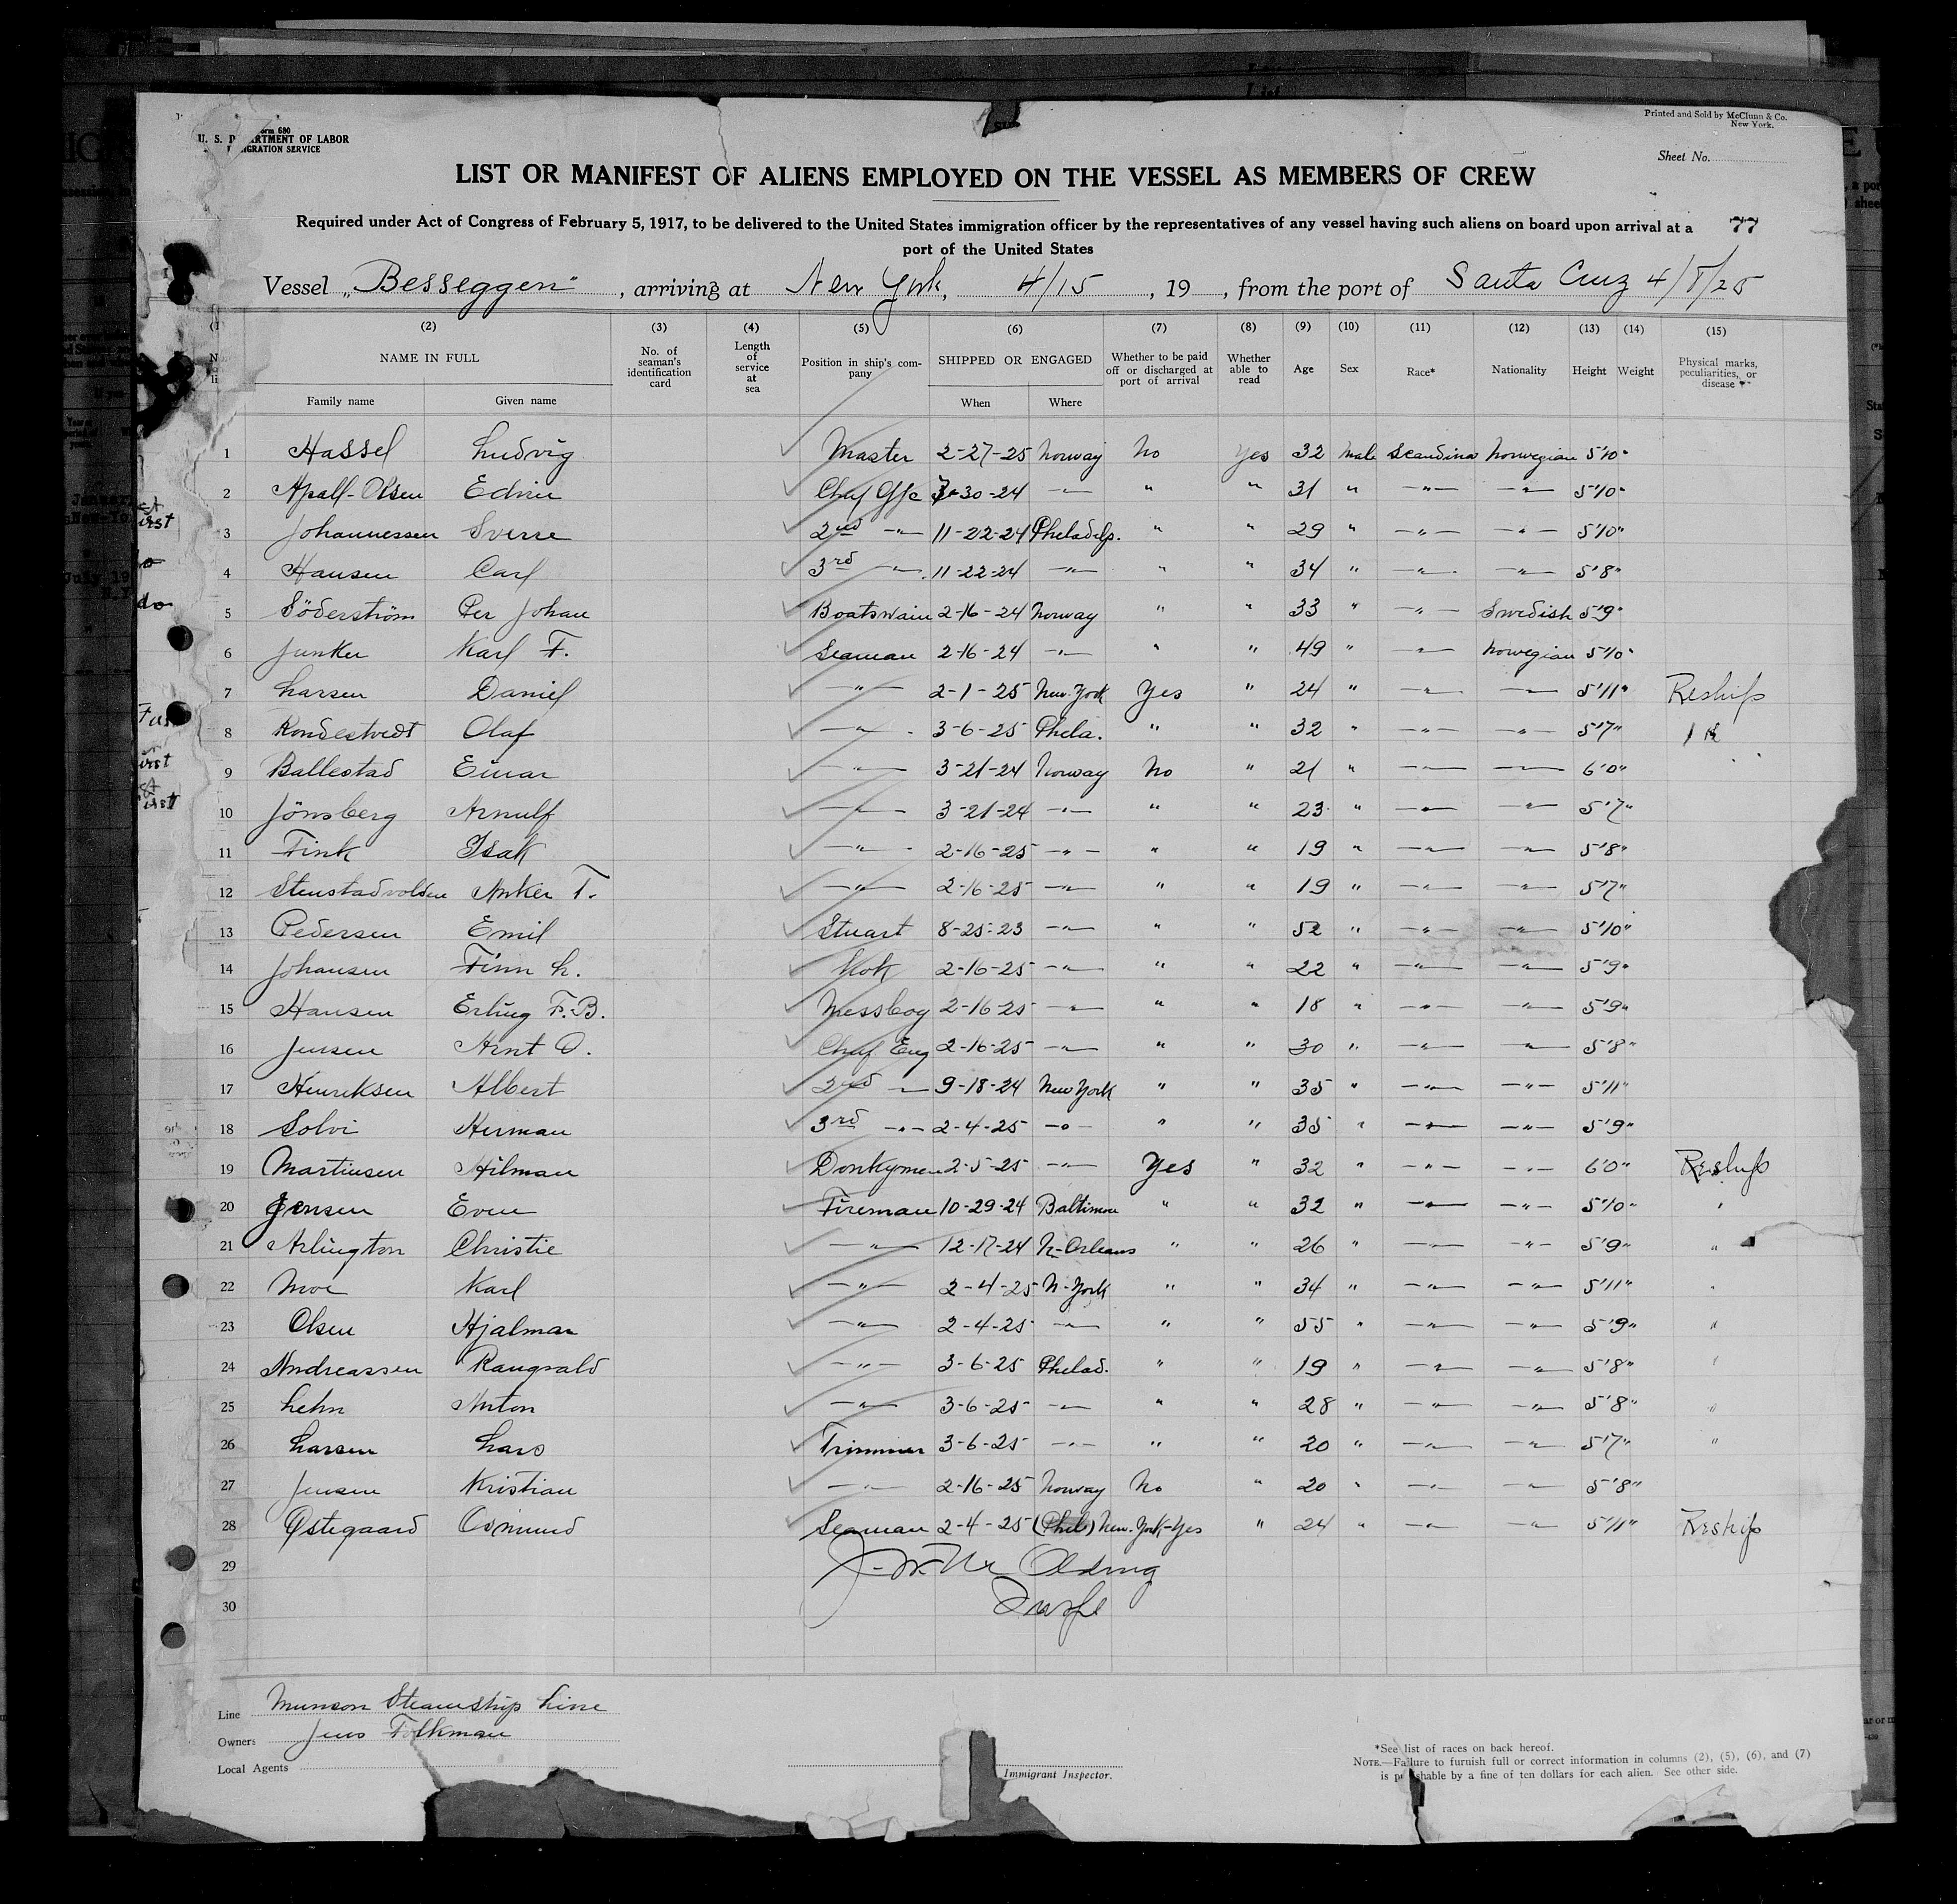 Form 680
U. S. DEPARTMENT OF LABOR
IMMIGRATION SERVICE
Printed and Sold by McClunn & Co.
New York.
Sheet No.
LIST OR MANIFEST OF ALIENS EMPLOYED ON THE VESSEL AS MEMBERS OF CREW
Required under Act of Congress of February 5, 1917, to be delivered to the United States immigration officer by the representatives of any vessel having such aliens on board upon arrival at a
port of the United States
77
Vessel „Besseggen", arriving at New York, 4/15, 19 , from the port of Santa Cruz 4/8/25
(2) (3) (4) (5) (6) (7) (8) (9) (10) (11) (12) (13) (14) (15)
NAME IN FULL No. of seaman's identification card Length of service at sea Position in ship's company SHIPPED OR ENGAGED Whether to be paid off or discharged at port of arrival Whether able to read Age Sex Race* Nationality Height Weight Physical marks, peculiarities, or disease
Family name Given name When Where
1 Hassel Ludvig Master 2-27-25 Norway No Yes 32 Male Scandina Norwegian 5'10"
2 Apall-Olsen Edvin Chef Offc 7-30-24 -"- " " 31 " -"- -"- 5'10"
3 Johannessen Sverre 2nd -"- 11-22-24 Philadelp. " " 29 " -"- -"- 5'10"
4 Hansen Carl 3rd -"- 11-22-24 -"- " " 34 " -"- -"- 5'8"
5 Söderström Per Johan Boatswain 2-16-24 Norway " " 33 " -"- Swedish 5'9"
6 Junker Karl F. Seaman 2-16-24 -"- " " 49 " -"- Norwegian 5'10"
7 Larsen Daniel -"- 2-1-25 New-York Yes " 24 " -"- -"- 5'11" Reship
8 Rondestvedt Olaf -"- 3-6-25 Phila. " " 32 " -"- -"- 5'7"
9 Ballestad Einar -"- 3-21-24 Norway No " 21 " -"- -"- 6'0"
10 Jönsberg Arnulf -"- 3-21-24 -"- " " 23 " -"- -"- 5'7"
11 Fink Isak -"- 2-16-25 -"- " " 19 " -"- -"- 5'8"
12 Stenstadvolden Anker T. -"- 2-16-25 -"- " " 19 " -"- -"- 5'7"
13 Pedersen Emil Stuart 8-25-23 -"- " " 52 " -"- -"- 5'10"
14 Johansen Finn L. Kok 2-16-25 -"- " " 22 " -"- -"- 5'9"
15 Hansen Erling F.B. Messboy 2-16-25 -"- " " 18 " -"- -"- 5'9"
16 Jensen Arnt O. Chef Eng 2-16-25 -"- " " 30 " -"- -"- 5'8"
17 Henriksen Albert 2nd -"- 9-18-24 New York " " 35 " -"- -"- 5'11"
18 Solvi Herman 3rd -"- 2-4-25 -"- " " 35 " -"- -"- 5'9"
19 Martinsen Hilman Donkymen 2-5-25 -"- Yes " 32 " -"- -"- 6'0" Reship
20 Jensen Even Fireman 10-29-24 Baltimore " " 32 " -"- -"- 5'10" "
21 Arlington Christie -"- 12-17-24 N-Orleans " " 26 " -"- -"- 5'9" "
22 Moe Karl -"- 2-4-25 N-York " " 34 " -"- -"- 5'11" "
23 Olsen Hjalmar -"- 2-4-25 -"- " " 55 " -"- -"- 5'9" "
24 Andreassen Rangvald -"- 3-6-25 Philad. " " 19 " -"- -"- 5'8" "
25 Lehn Anton -"- 3-6-25 -"- " " 28 " -"- -"- 5'8" "
26 Larsen Lars Trimmer 3-6-25 -"- " " 20 " -"- -"- 5'7" "
27 Jensen Kristian -"- 2-16-25 Norway No " 20 " -"- -"- 5'8"
28 Østegaard Osmund Seaman 2-4-25 (Phil) New-York-Yes " 24 " -"- -"- 5'11" Reship
29
30
Line Munson Steamship Line
Owners Jens Folkman
Local Agents
Immigrant Inspector.
*See list of races on back hereof.
NOTE.—Failure to furnish full or correct information in columns (2), (5), (6), and (7)
is punishable by a fine of ten dollars for each alien. See other side.